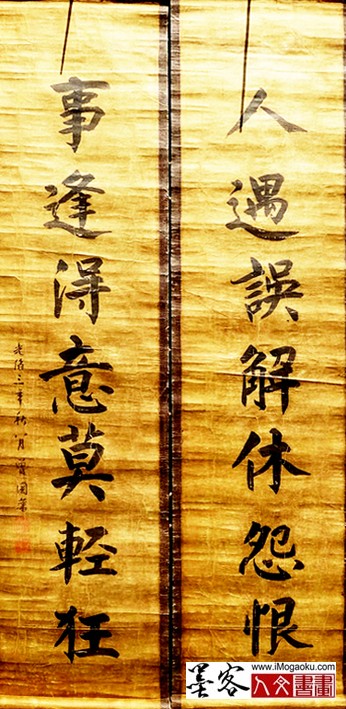 人遇誤解休怨恨
事逢得意莫輕狂
光緒三年秋月
墨客
www.iMogaoku.com
人文書畫